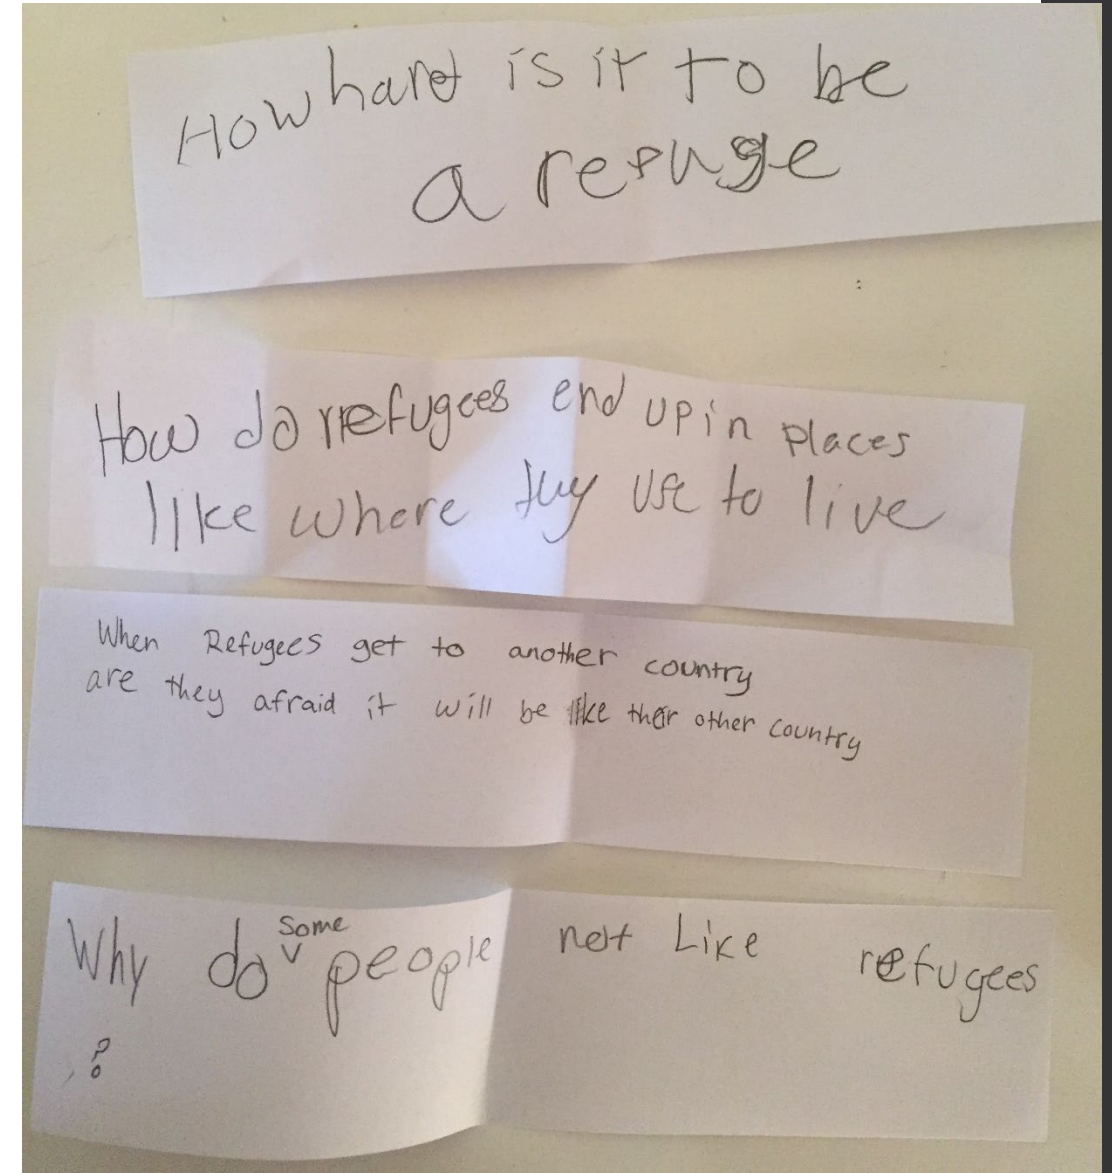 How hard is it to be
a refuge
How do refugees end up in places
like where they use to live
When Refugees get to another country
are they afraid it will be like ther other country
Why do some people not Like refugees
?